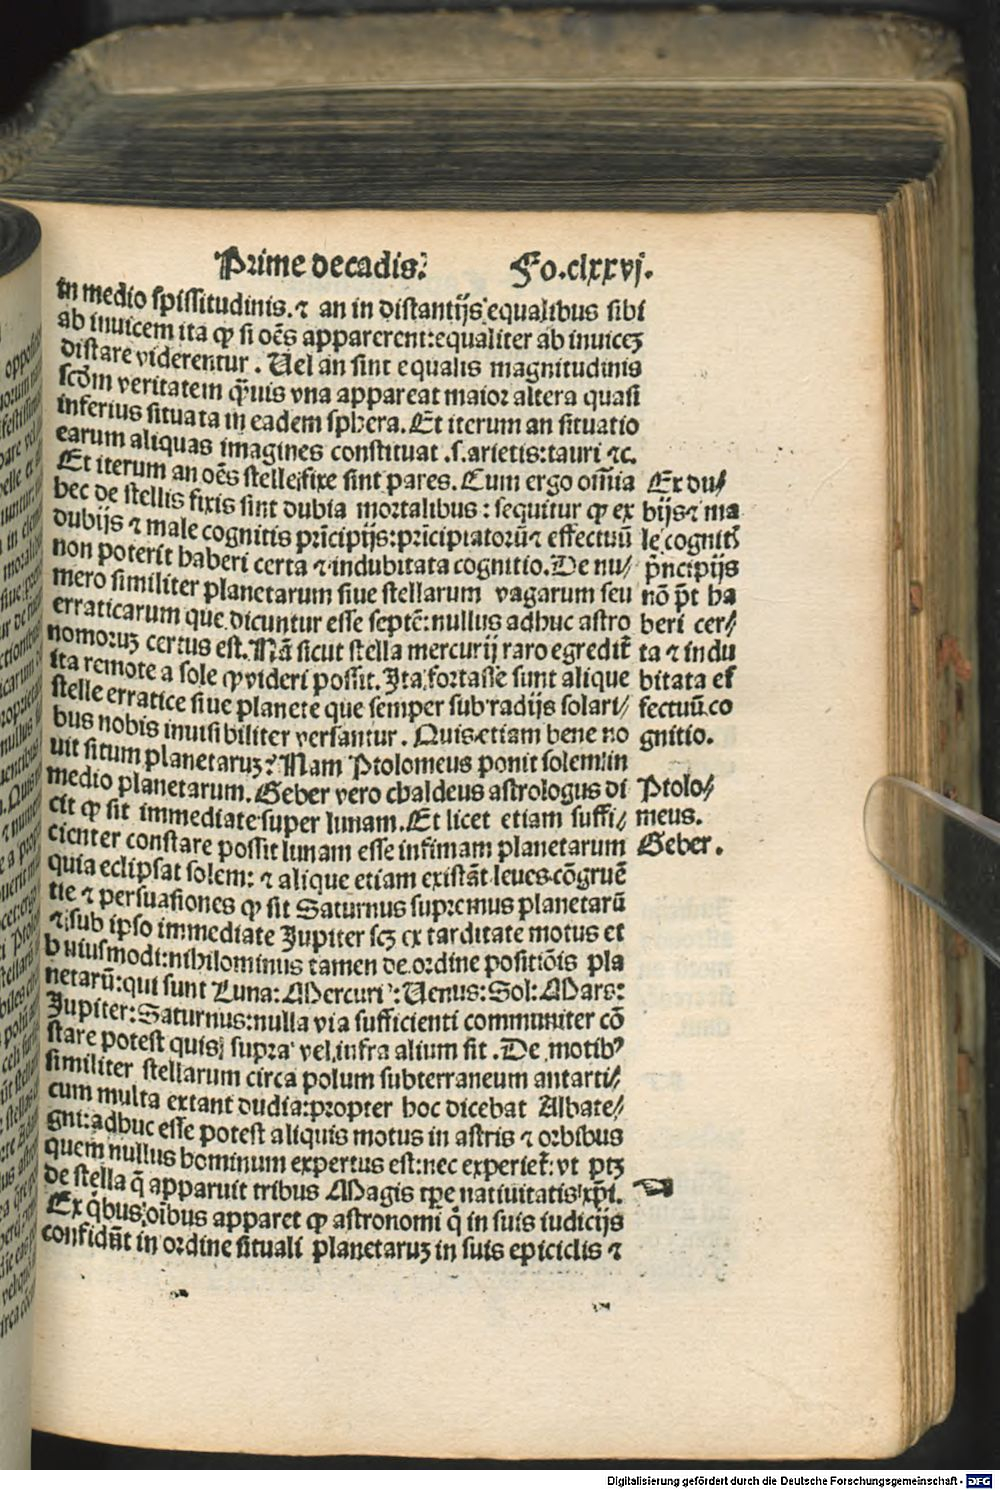 Prime decadis. Fo.clxxvj.
in medio spissitudinis. ⁊ an in distantijs equalibus sibi
ab inuicem ita ꝙ si oēs apparerent: equaliter ab inuiceꝫ
distare viderentur. Uel an sint equalis magnitudinis
scḋm veritatem q̄uis vna appareat maior altera quasi
inferius situata in eadem sphera. Et iterum an situatio
earum aliquas imagines constituat .s. arietis: tauri ⁊c.
Et iterum an oēs stelle fixe sint pares. Cum ergo om̄ia
hec de stellis fixis sint dubia mortalibus: sequitur ꝙ ex
dubijs ⁊ male cognitis pr̄icipijs: pr̄icipiatorū ⁊ effectuū
non poterit haberi certa ⁊ indubitata cognitio. De nu/
mero similiter planetarum siue stellarum vagarum seu
erraticarum que dicuntur esse septē: nullus adhuc astro
nomoruꝫ certus est. Nā sicut stella mercurij raro egredit̄
ita remote a sole ꝙ videri possit. Ita fortasse sunt alique
stelle erratice siue planete que semper sub radijs solari/
bus nobis inuisibiliter versantur. Quis etiam bene no
uit situm planetaruꝫ? Nam Ptolomeus ponit solem in
medio planetarum. Geber vero chaldeus astrologus di
cit ꝙ sit immediate super lunam. Et licet etiam suffi/
cienter constare possit lunam esse infimam planetarum
quia eclipsat solem: ⁊ alique etiam existāt leues cōgruē
tie ⁊ persuasiones ꝙ sit Saturnus supremus planetarū
⁊ sub ipso immediate Jupiter scꝫ ex tarditate motus et
huiusmodi: nihilominus tamen de ordine positiōis pla
netarū: qui sunt Luna: Mercuriꝰ: Uenus: Sol: Mars:
Jupiter: Saturnus: nulla via sufficienti communiter cō
stare potest quis supra vel infra alium sit. De motibꝰ
similiter stellarum circa polum subterraneum antarti/
cum multa extant dudia: propter hoc dicebat Albate/
gni: adhuc esse potest aliquis motus in astris ⁊ orbibus
quem nullus hominum expertus est: nec experiet̄: vt ptꝫ
de stella q̄ apparuit tribus Magis tꝑe natiuitatis xp̄i.
Ex qͥbus oībus apparet ꝙ astronomi qͥ in suis iudicijs
confidūt in ordine situali planetaruꝫ in suis epiciclis ⁊
Ex du/
bijs ⁊ ma
le cognit̄
pͥncipijs
nō pt̄ ha
beri cer/
ta ⁊ indu
bitata ef
fectuū co
gnitio.
Ptolo/
meus.
Geber.
Digitalisierung gefördert durch die Deutsche Forschungsgemeinschaft - DFG